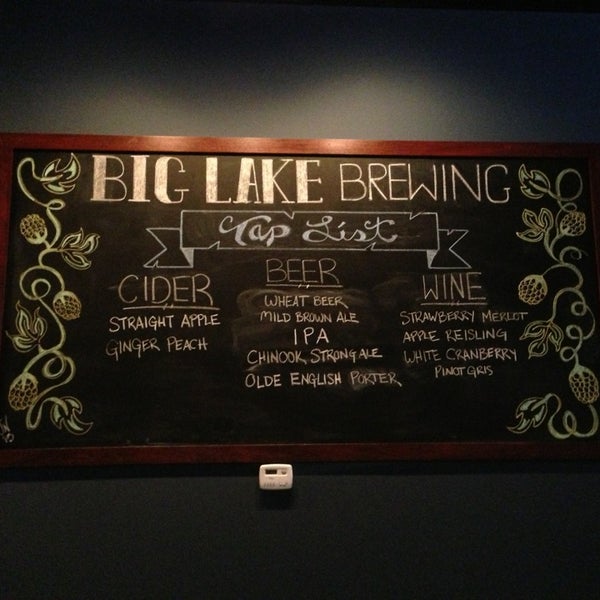 BIG LAKE BREWING
Tap List
CIDER
STRAIGHT APPLE
GINGER PEACH
BEER
WHEAT BEER
MILD BROWN ALE
IPA
CHINOOK STRONG ALE
OLDE ENGLISH PORTER
WINE
STRAWBERRY MERLOT
APPLE REISLING
WHITE CRANBERRY
PINOT GRIS